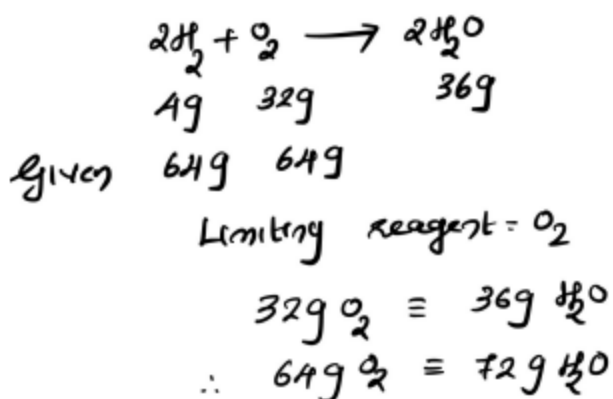 2H₂ + O₂ ⟶ 2H₂O
4g 32g 36g
Given 64g 64g
Limiting reagent = O₂
32g O₂ ≡ 36g H₂O
∴ 64g O₂ ≡ 72g H₂O